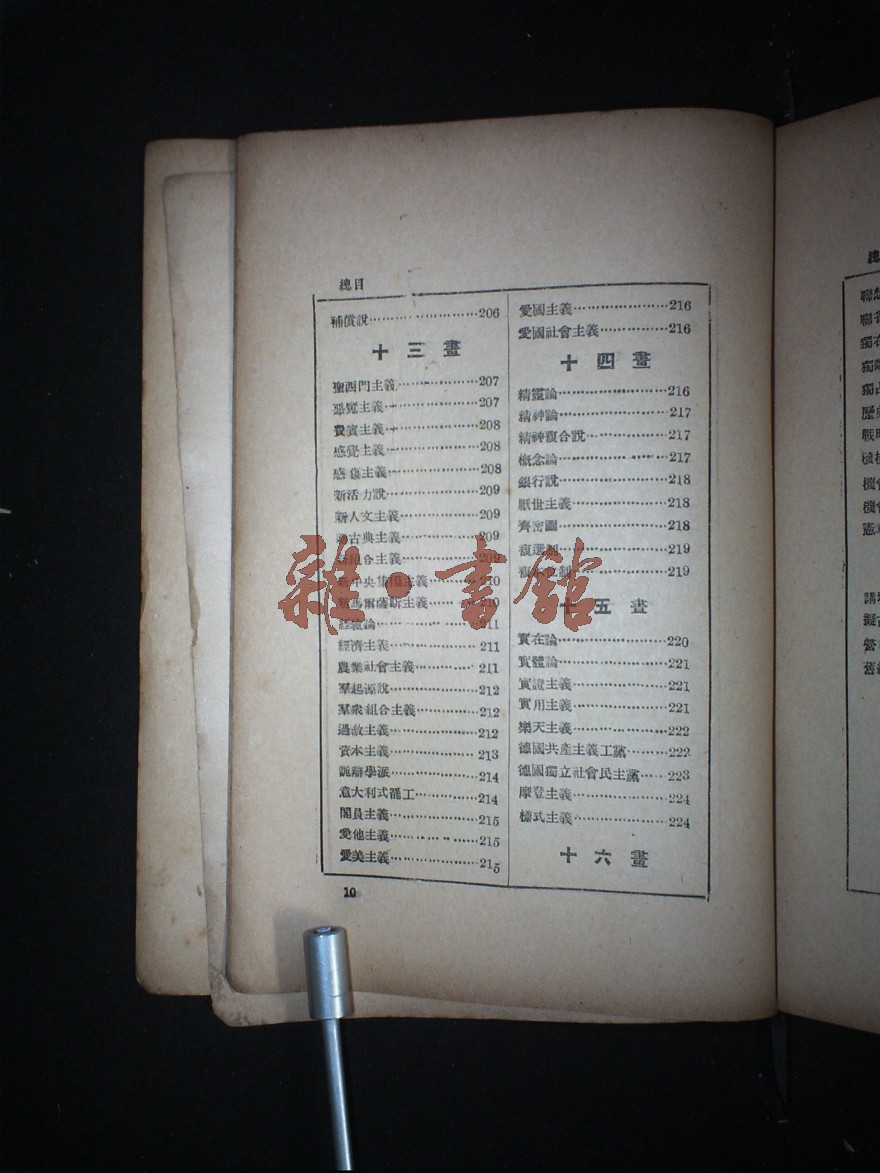 總目
補償說……………………206
十三畫
聖西門主義……………207
惡魔主義………………207
費賓主義………………208
感覺主義………………208
感傷主義………………208
新活力說………………209
新人文主義……………209
古典主義……………209
新組合主義……………209
新中央集權主義………210
新馬爾薩斯主義………210
經驗論…………………211
經濟主義………………211
農業社會主義…………211
羣起源說………………212
羣衆組合主義…………212
過激主義………………212
資本主義………………213
詭辯學派………………214
意大利式罷工…………214
閥員主義………………215
愛他主義………………215
愛美主義………………215
愛國主義…………………216
愛國社會主義……………216
十四畫
精靈論……………………216
精神論……………………217
精神複合說………………217
概念論……………………217
銀行說……………………218
厭世主義…………………218
齊密圖……………………218
複選制……………………219
複本位制…………………219
十五畫
實在論……………………220
實體論……………………221
實證主義…………………221
實用主義…………………221
樂天主義…………………222
德國共產主義工黨………222
德國獨立社會民主黨……223
摩登主義…………………224
樣式主義…………………224
十六畫
10
雜·書館
總
聯想
聯省
獨在
獨斷
獨占
歷史
戰時
機械
機會
機會
憲章
講
擬古
營
舊